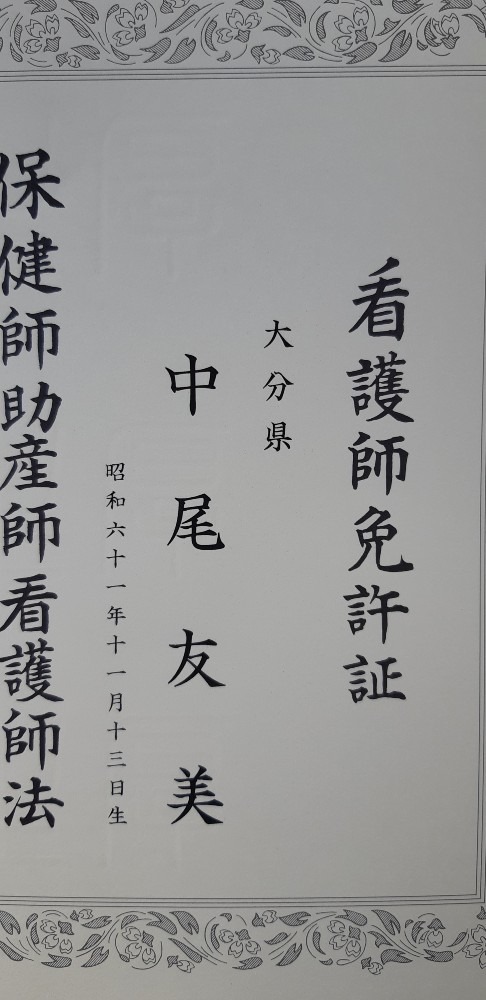 看護師免許証
大分県
中尾友美
昭和六十一年十一月十三日生
保健師助産師看護師法